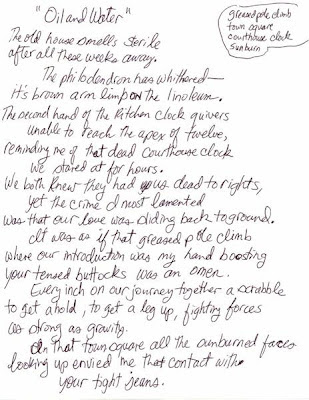 "Oil and Water"
greased pole climb
town square
courthouse clock
sunburn
The old house smells sterile
after all these weeks away.
The philodendron has withered—
it's brown arm limp on the linoleum.
The second hand of the kitchen clock quivers
unable to reach the apex of twelve,
reminding me of that dead courthouse clock
we stared at for hours.
We both knew they had us dead to rights,
yet the crime I most lamented
was that our love was sliding back to ground.
It was as if that greased pole climb
where our introduction was my hand boosting
your tensed buttocks was an omen.
Every inch on our journey together a scrabble
to get ahold, to get a leg up, fighting forces
as strong as gravity.
In that town square all the sunburned faces
looking up envied me that contact with
your tight jeans.